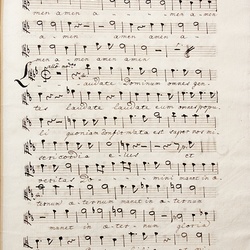 amen amen a - - men a - men
a - amen amen amen a -
men a - men amen amen
Laudate Dominum omnes gen -
tes laudate laudate eum omnes popu -
li quoniam confirmata est super nos mi -
sericordia e - - ius et
veritas Do - - mini manet in æ -
ternum æternum manet in æternum
manet in æ - ternum gloria